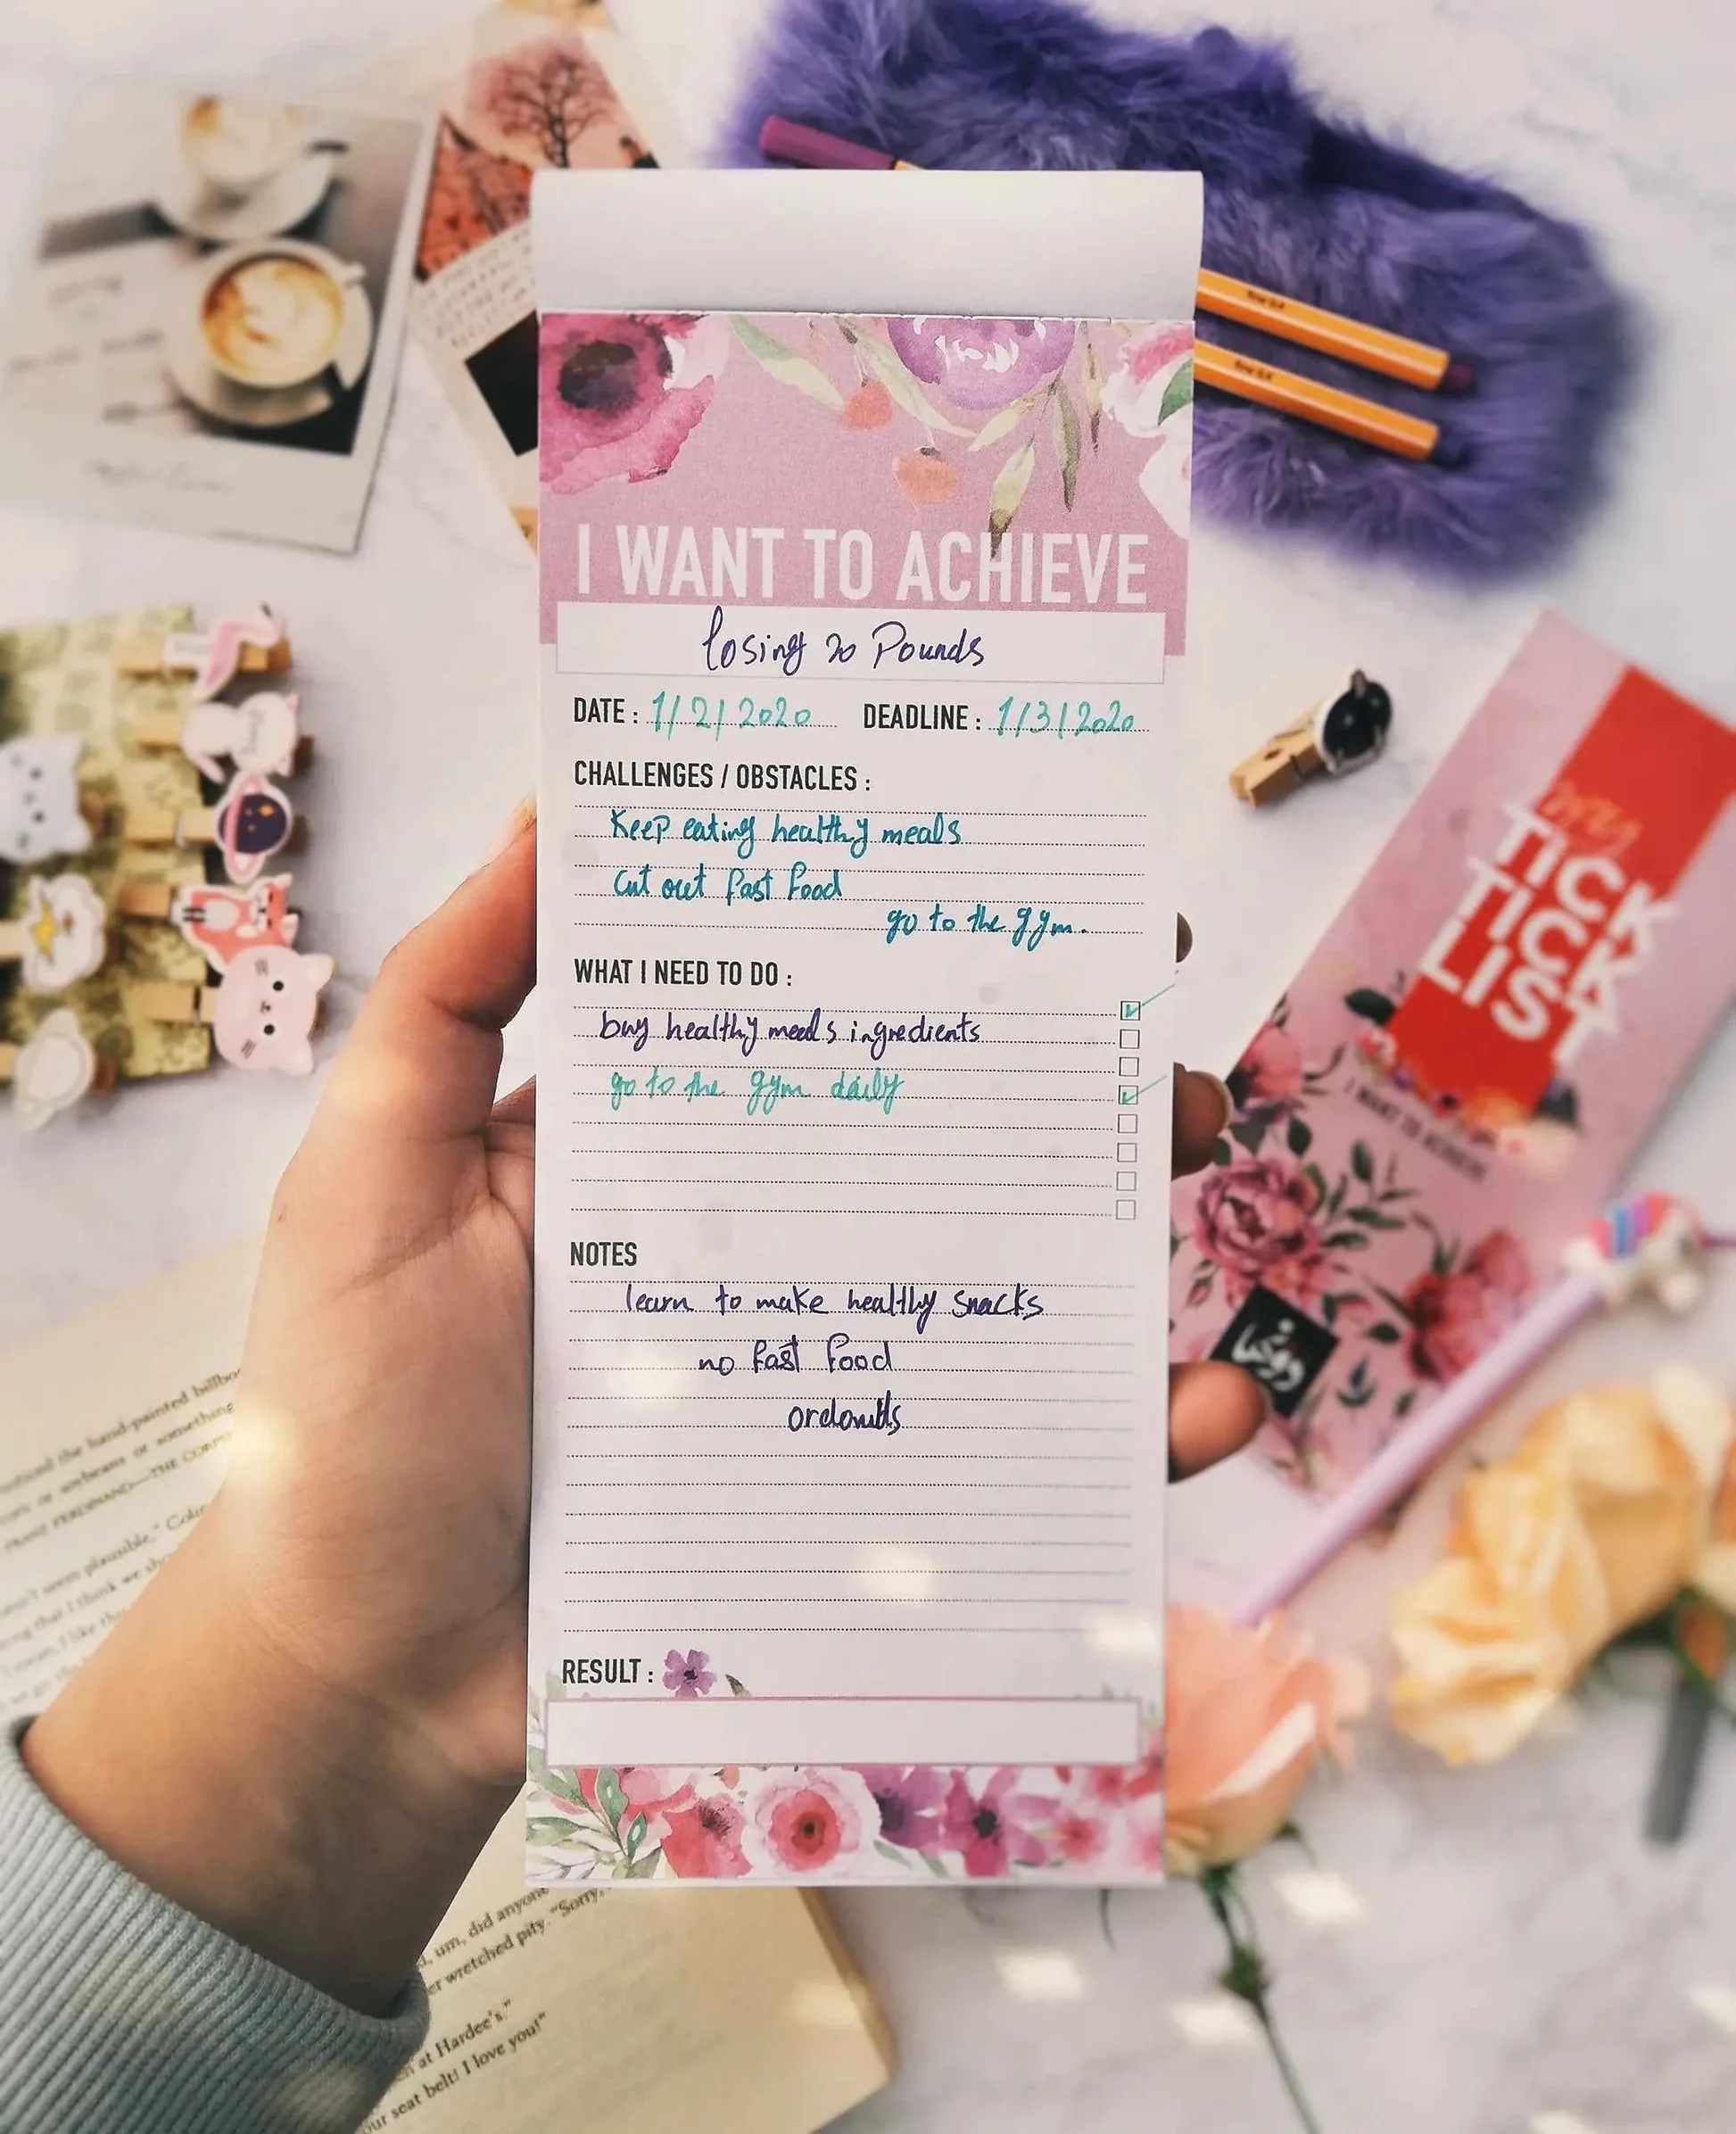 I WANT TO ACHIEVE
losing 20 Pounds
DATE : 1/2/2020 DEADLINE : 1/3/2020
CHALLENGES / OBSTACLES :
Keep eating healthy meals
Cut out fast food
go to the gym.
WHAT I NEED TO DO :
buy healthy meals ingredients
go to the gym daily
NOTES
learn to make healthy snacks
no fast food
RESULT :
my
TICK
TICK
LIST
I WANT TO ACHIEVE
noticed the hand-painted
or soybeans or something
FRANZ FERDINAND—THE
seem plausible."
that I think we
I like
um, did anyone
wretched pity. "Sorry,
at Hardee's."
seat belt! I love you!"